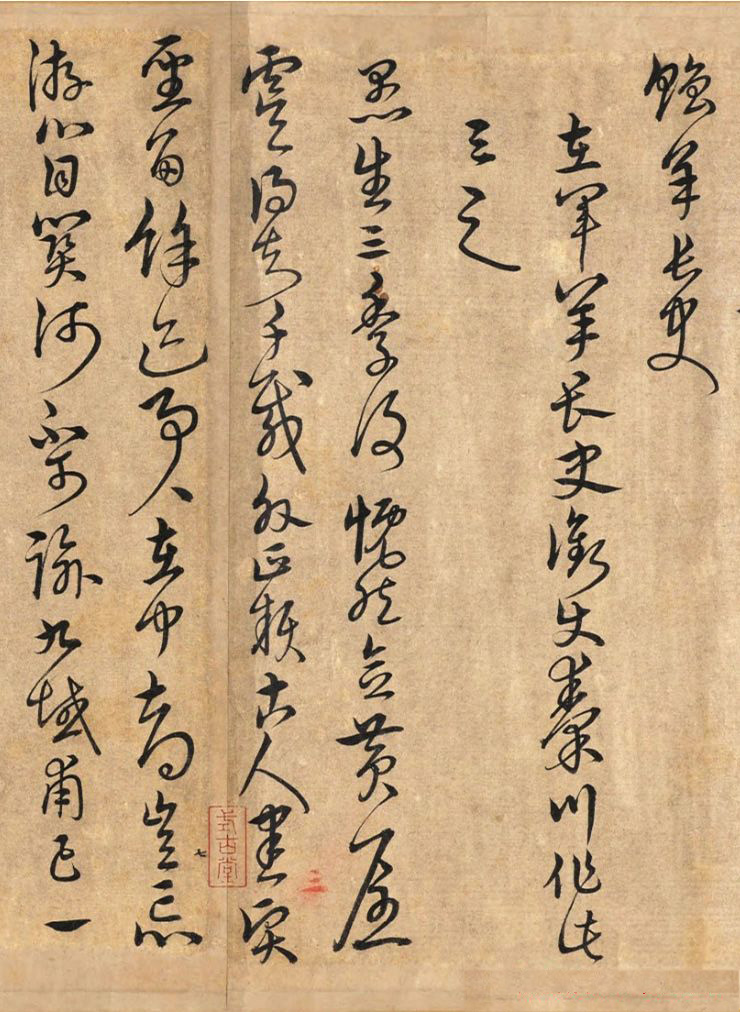 贈羊長史
左軍羊長史銜使秦川作此
與之
愚生三季後慨然念黃
虞得知千載外正賴古人書賢
聖留餘迹事事在中都豈忘
游心目關河不可踰九域甫已一
式古堂